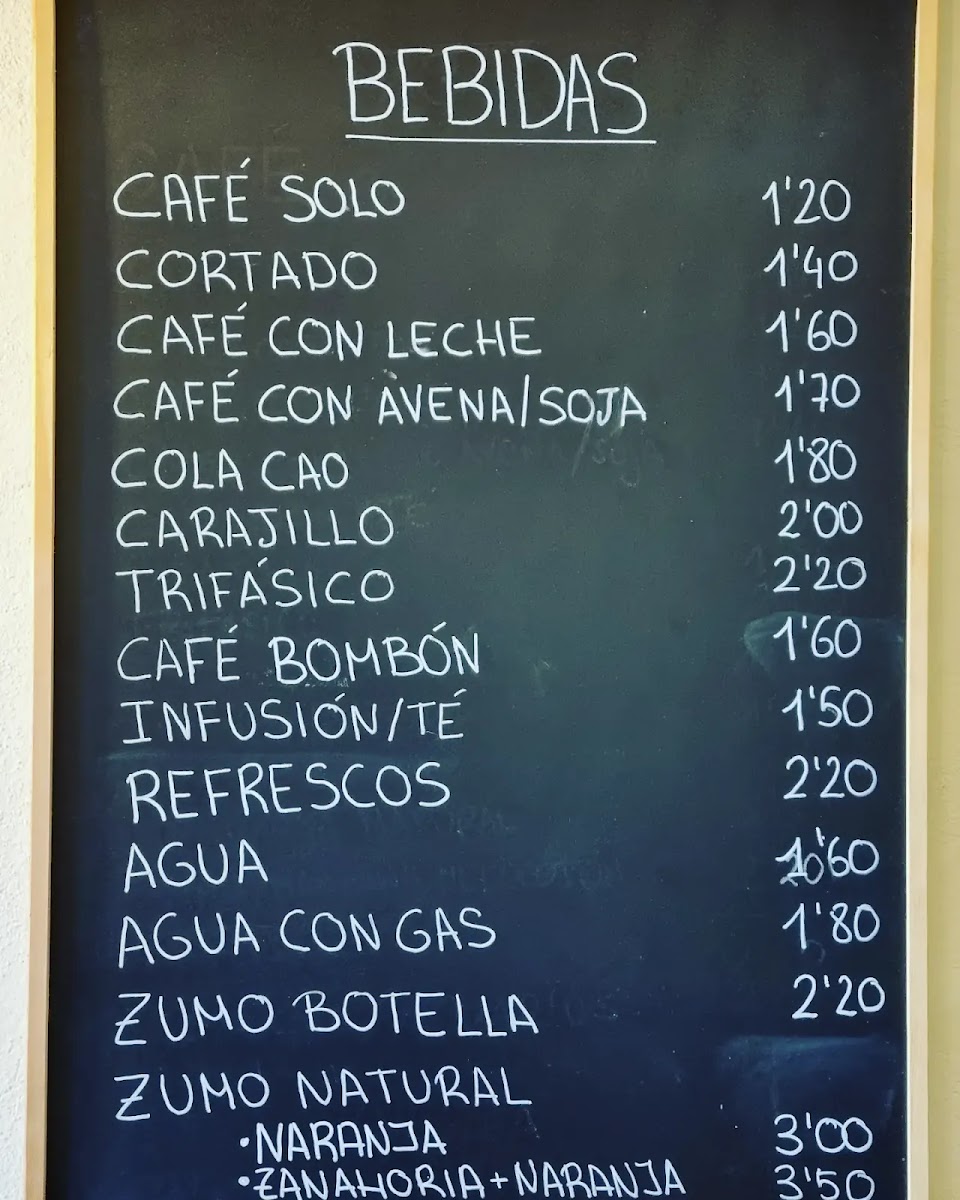 BEBIDAS
CAFÉ SOLO 1'20
CORTADO 1'40
CAFÉ CON LECHE 1'60
CAFÉ CON AVENA/SOJA 1'70
COLA CAO 1'80
CARAJILLO 2'00
TRIFÁSICO 2'20
CAFÉ BOMBÓN 1'60
INFUSIÓN/TÉ 1'50
REFRESCOS 2'20
AGUA 1'60
AGUA CON GAS 1'80
ZUMO BOTELLA 2'20
ZUMO NATURAL
•NARANJA 3'00
•ZANAHORIA+NARANJA 3'50